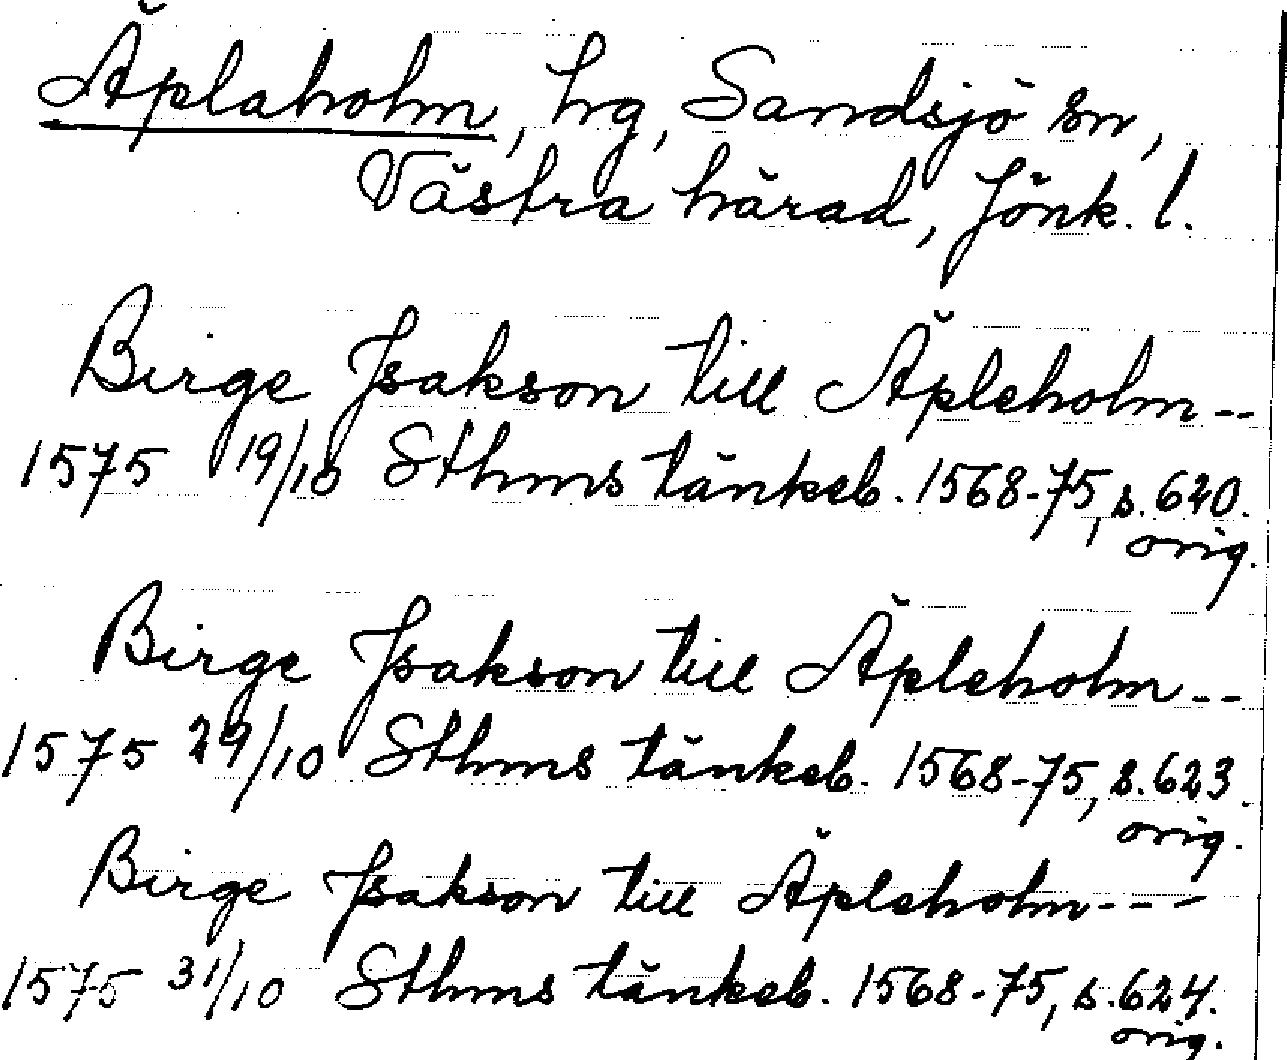 Äplaholm, hg, Sandsjö sn,
Västra härad, Jönk. l.
Birge Jsakson till Äpleholm--
1575 19/10 Sthms tänkeb. 1568-75, s. 620.
orig.
Birge Jsakson till Äpleholm--
1575 29/10 Sthms tänkeb. 1568-75, s. 623.
orig.
Birge Jsakson till Äpleholm---
1575 31/10 Sthms tänkeb. 1568-75, s. 624.
orig.